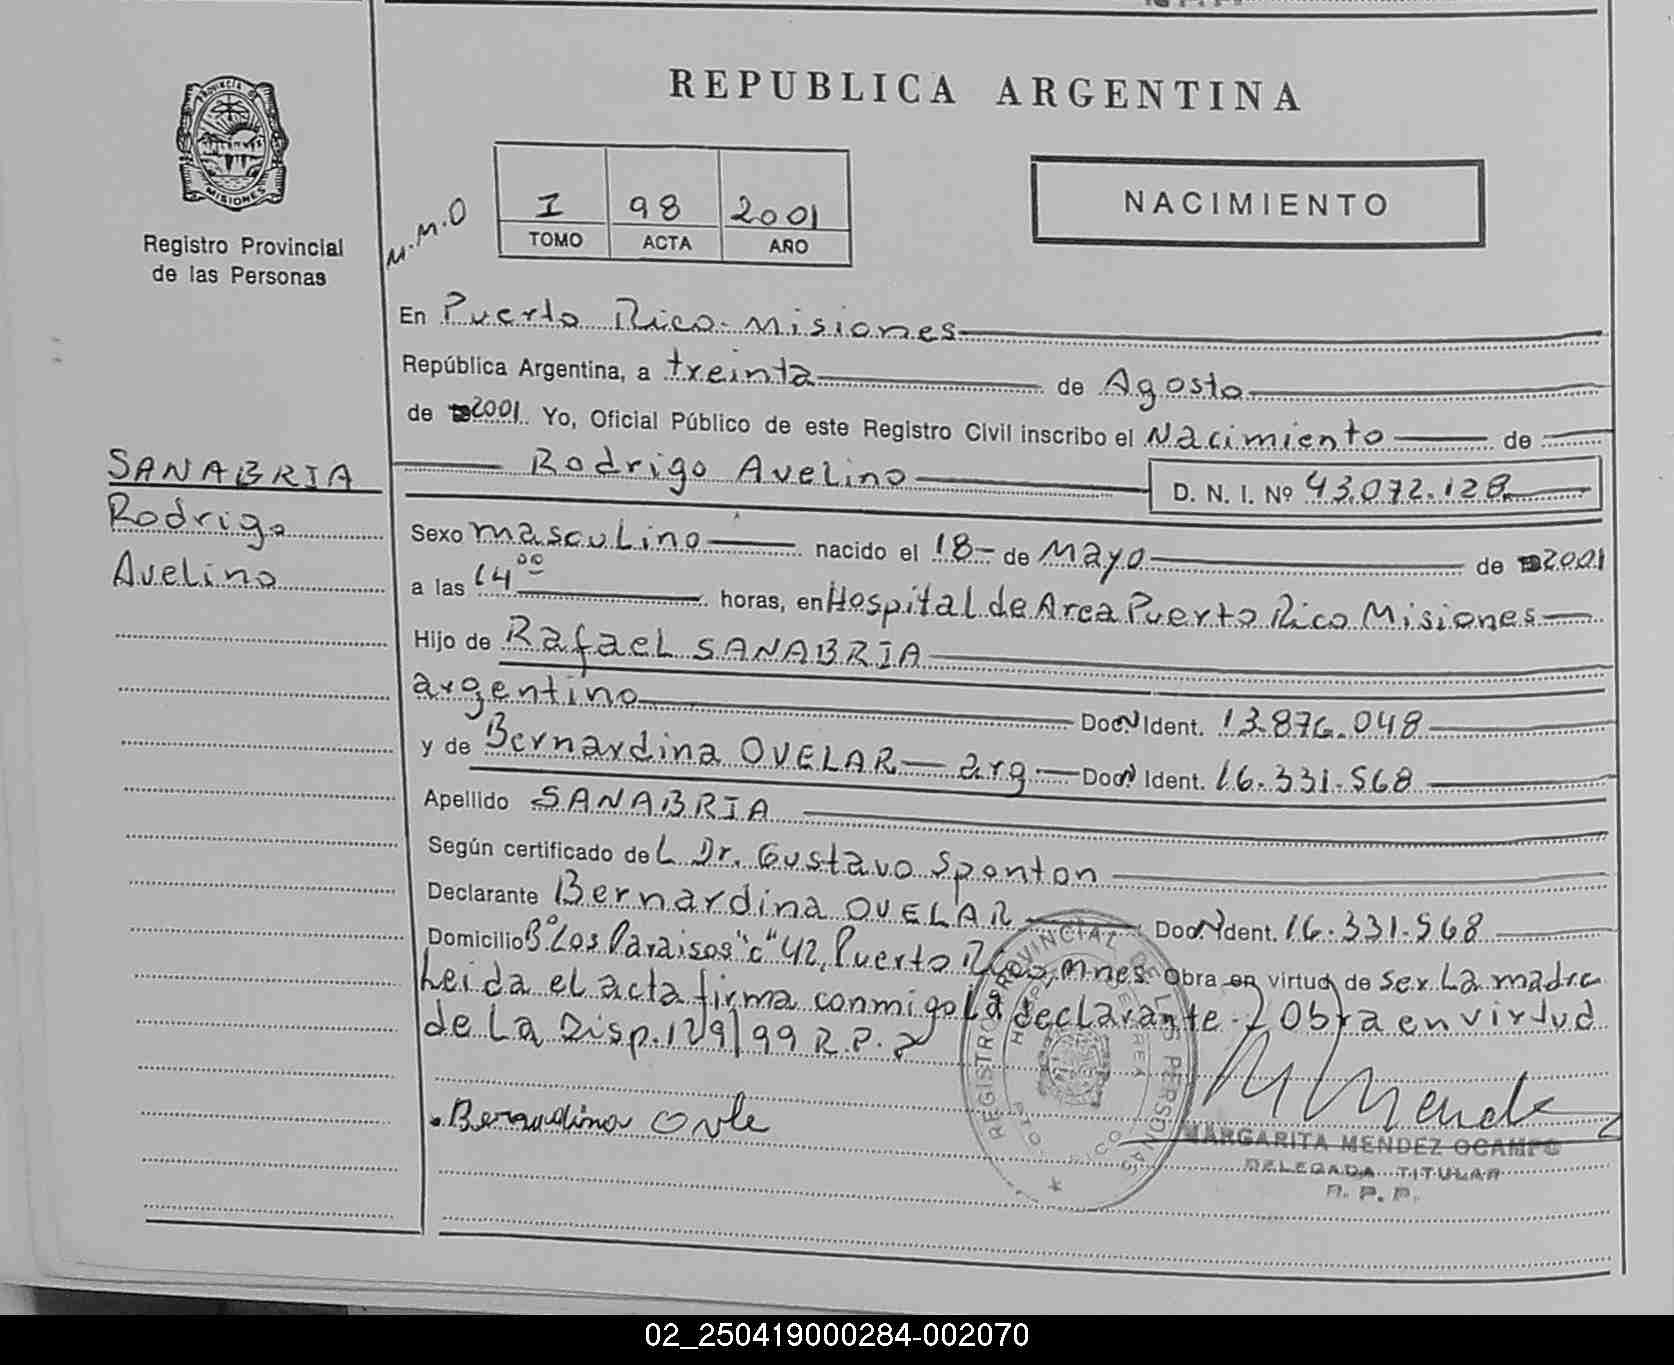 REPUBLICA ARGENTINA
PROVINCIA DE
MISIONES
Registro Provincial
de las Personas
M.M.O
I 98 2001
TOMO ACTA AÑO
NACIMIENTO
En Puerto Rico-Misiones
República Argentina, a treinta de Agosto
de 2001. Yo, Oficial Público de este Registro Civil inscribo el Nacimiento de
Rodrigo Avelino D. N. I. Nº 43.072.128
SANABRIA
Rodrigo
Avelino
Sexo masculino nacido el 18- de Mayo de 2001
a las 14 00 horas, en Hospital de Area Puerto Rico Misiones
Hijo de Rafael SANABRIA
argentino Doc N Ident. 13.876.048
y de Bernardina OVELAR arg Doc N Ident. 16.331.568
Apellido SANABRIA
Según certificado del Dr. Gustavo Sponton
Declarante Bernardina OVELAR Doc N Ident. 16.331.568
Domicilio Bº Los Paraisos "c" 42, Puerto Rico, Mnes. Obra en virtud de ser La madre
Leida el acta firma conmigo La declarante. Obra en virtud
de La Disp. 129/99 R.P.P
Bernardina Ovle
REGISTRO PROVINCIAL DE LAS PERSONAS
MARGARITA MENDEZ OCAMPO
DELEGADA TITULAR
R. P. P.
02_250419000284-002070